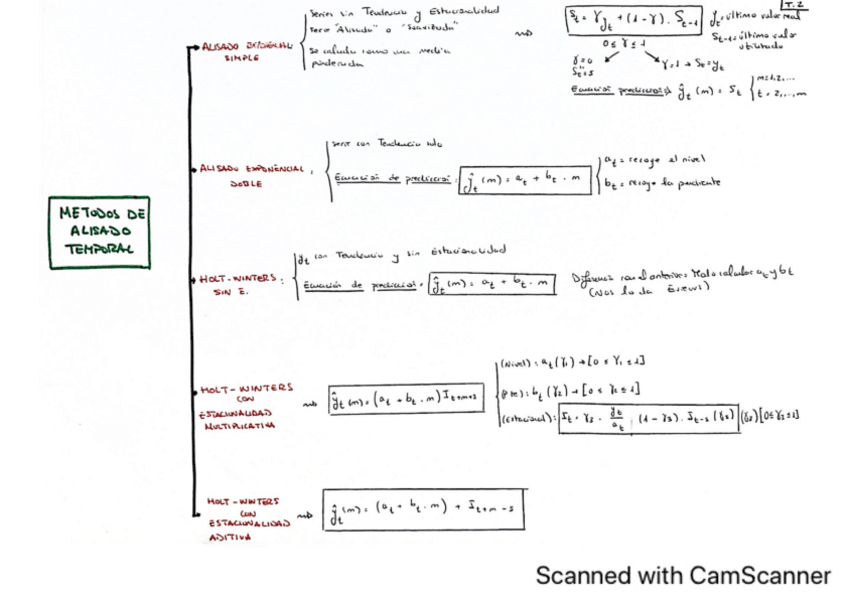 T.2
METODOS DE
ALISADO
TEMPORAL
ALISADO EXPONENCIAL
SIMPLE
Series sin Tendencia y Estacionalidad
serie "Alisada" o "Suavizada"
Se calcula como una media
ponderada
S_t = γ y_t + (1-γ) . S_t-1
y_t = último valor real
S_t-1 = último valor
utilizado
0 ≤ γ ≤ 1
γ=0
γ=1 → S_t = y_t
Ecuación predicción ŷ_t (m) = S_t
ALISADO EXPONENCIAL
DOBLE
serie con Tendencia
Ecuación de predicción: ŷ_t (m) = a_t + b_t . m
a_t = recoge el nivel
b_t = recoge la pendiente
HOLT-WINTERS :
SIN E.
y_t con Tendencia y sin Estacionalidad
Ecuación de predicción: ŷ_t (m) = a_t + b_t . m
(Nos lo da Eviews)
HOLT-WINTERS
CON
ESTACIONALIDAD
MULTIPLICATIVA
ŷ_t (m) = (a_t + b_t . m) I_t+m-s
(Nivel) : a_t (γ1) → [0 ≤ γ1 ≤ 1]
b_t (γ2) → [0 ≤ γ2 ≤ 1]
(Estacional) : I_t = γ3 . y_t/a_t (1-γ3) . I_t-s (γ3) (γ3) [0≤γ3≤1]
HOLT-WINTERS
CON
ESTACIONALIDAD
ADITIVA
ŷ_t (m) = (a_t + b_t . m) + I_t+m-s
Scanned with CamScanner